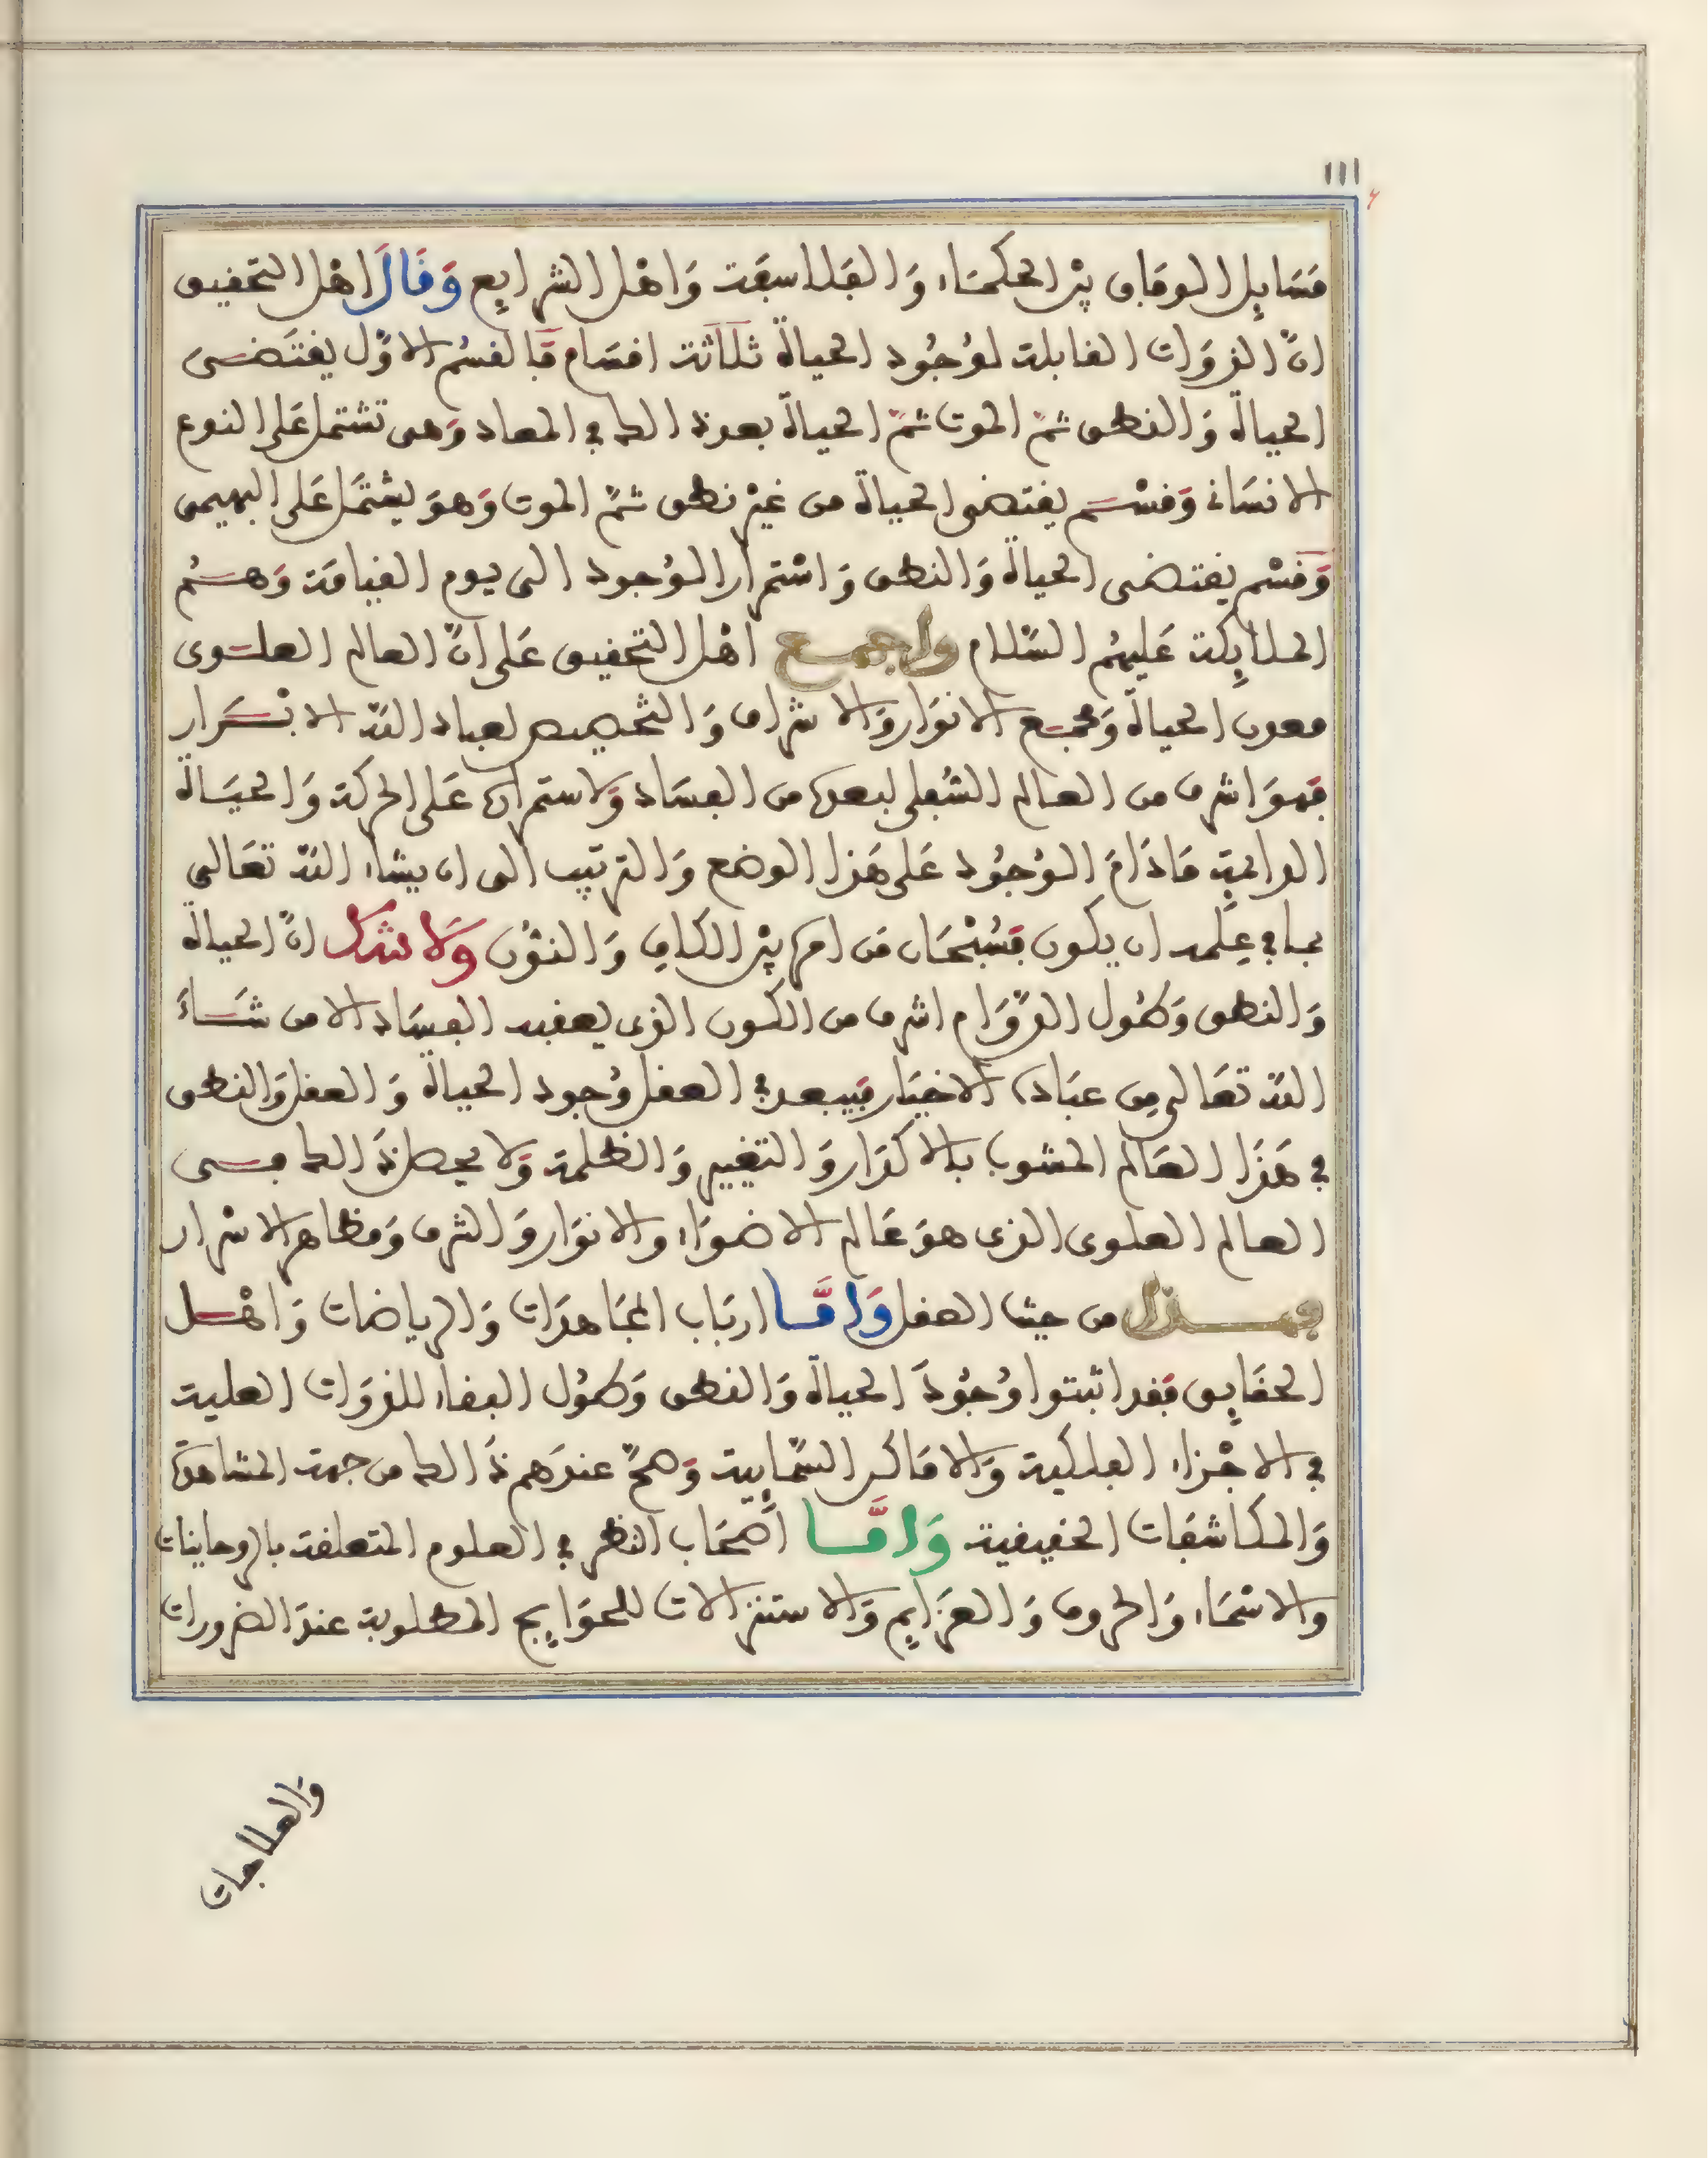 ١١١
مَسَايِل الوفاق بيْن الحكمَاء وَالفَلاسِفَة وَاهْل الشرايع وَقَالَ اهْل التحقيق
انّ الذوَات القابلة لوُجُود الحياة ثلَاثة اقسَام فَالقسْم الاوّل يقتَضى
الحياة وَالنطق ثمّ الموت ثمّ الحياة بعد ذالك في المعاد وَهى تشتمل عَلى النوع
الانسَانى وَقسْم يقتضى الحياة من غيْر نطق ثمّ الموت وَهوَ يشتمَل عَلى البهيمى
وَقسْم يقتضى الحياة وَالنطق وَاسْتمرار الوُجود الى يوم القيامَة وَهُم
الملايكة عَليهُم السَّلام واجمع اهْل التحقيق عَلى انّ العالم العلوى
معدن الحياة وَمجمع الانوَار وَالاشراف وَالتخصيص لعباد اللّه الابْرَار
فَهوَ اشرف من العالم السُّفلى لبعده من الفسَاد وَلاستمراره عَلى الحركة وَالحيَاة
الدايمة مَا دَامَ الوُجُود عَلى هَذا الوضع وَالترتيب الى ان يشاء اللّه تعَالى
بما في عِلمه ان يكون فَسُبْحَان مَن امره بيْن الكاف وَالنوُن وَلَا شك انّ الحياة
وَالنطق وَطُول الدّوَام اشرف من الكون الذى يعقبه الفسَاد الا من شَاءَ
اللّه تعَالى مِن عبَاده الاخيَار فَيبعد في العقل وُجود الحياة وَالعقل وَالنطق
في هَذَا العَالم المشوب بالاكدَار وَالتغيير وَالظلمة وَلا يحصل ذَالك في
العالم العلوى الذى هوَ عَالم الاضوَاء والانوَار وَالشرف وَمظاهر الاسْرار
فهذا من حيث العقل وَامَّا ارْبَاب المجَاهدَات وَالرياضات وَاهْل
الحقَايِق فَقد اثبتوا وُجُودَ الحياة وَالنطق وَطُول البقاء للذوَات العلية
في الاجْزاء الفلكية وَالامَاكن السَّمَايِية وَصحّ عندَهم ذَالك من جهة المشاهدة
وَالمكاشفَات الحقيقية وَامَّا اصْحَاب النظر في العلوم المتعلقة بالروحاينات
والاسْمَاء وَالحروف وَالعزَايِم وَالاستنزالات للحوَايِج المطلوبة عندَ الضرورات
وَالعلاجات